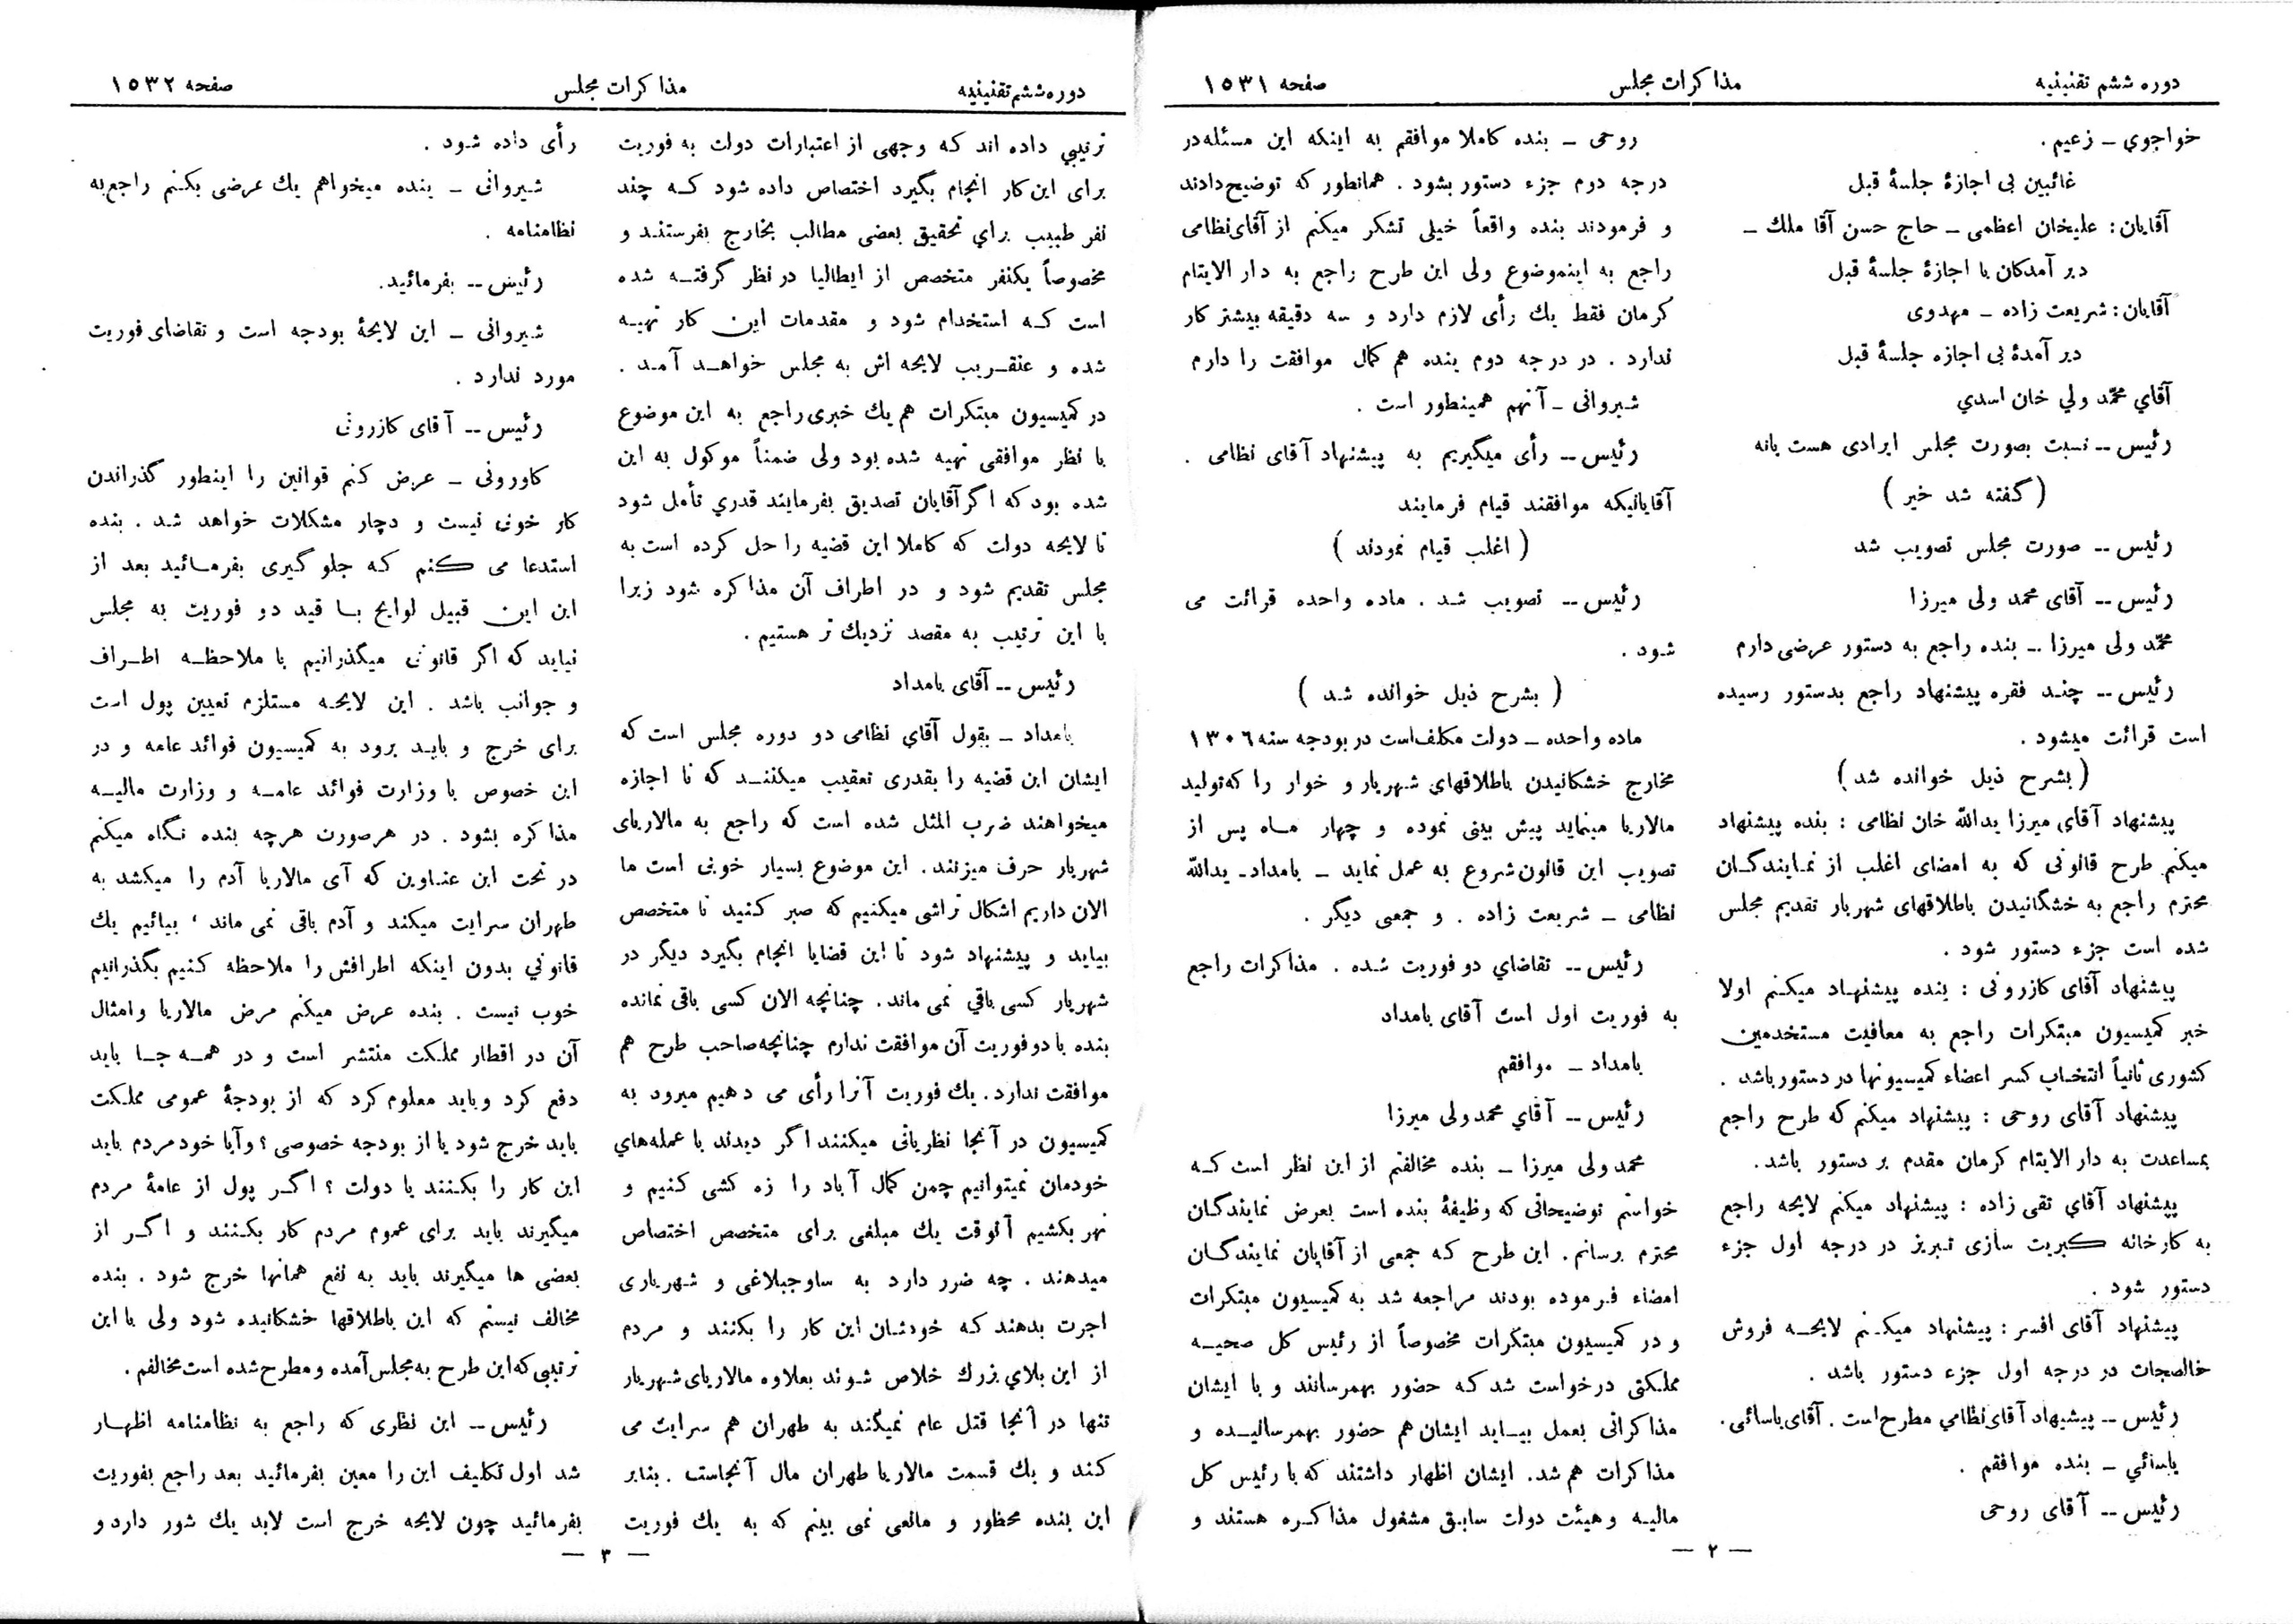 دوره ششم تقنینیه
مذاکرات مجلس
صفحه ۱۵۳۱
خواجوی ــ زعیم .
غائبین بی اجازۀ جلسۀ قبل
آقایان : علیخان اعظمی ــ حاج حسن آقا ملك ــ
دیر آمدکان با اجازۀ جلسۀ قبل
آقایان : شریعت زاده ــ مهدوی
دیر آمدۀ بی اجازه جلسۀ قبل
آقای محمّد ولی خان اسدی
رئیس ــ نسبت بصورت مجلس ایرادی هست یانه
( گفته شد خیر )
رئیس ــ صورت مجلس تصویب شد
رئیس ــ آقای محمد ولی میرزا
محمّد ولی میرزا ــ بنده راجع به دستور عرضی دارم
رئیس ــ چند فقره پیشنهاد راجع بدستور رسیده
است قرائت میشود .
( بشرح ذیل خوانده شد )
پیشنهاد آقای میرزا یدالله خان نظامی : بنده پیشنهاد
میکنم طرح قانونی که به امضای اغلب از نمایندگان
محترم راجع به خشگانیدن باطلاقهای شهریار تقدیم مجلس
شده است جزء دستور شود .
پیشنهاد آقای کازرونی : بنده پیشنهاد میکنم اولا
خبر کمیسیون مبتکرات راجع به معافیت مستخدمین
کشوری ثانیاً انتخاب کسر اعضاء کمیسیونها در دستور باشد .
پیشنهاد آقای روحی : پیشنهاد میکنم که طرح راجع
بمساعدت به دار الایتام کرمان مقدم بر دستور باشد.
پیشنهاد آقای تقی زاده : پیشنهاد میکنم لایحه راجع
به کارخانه کبریت سازی تبریز در درجه اول جزء
دستور شود .
پیشنهاد آقای افسر : پیشنهاد میکنم لایحه فروش
خالصجات در درجه اول جزء دستور باشد .
رئیس ــ پیشیهاد آقای نظامی مطرح است . آقای یاسائی .
یاسائی ــ بنده موافقم .
رئیس ــ آقای روحی
روحی ــ بنده کاملا موافقم به اینکه این مسئله در
درجه دوم جزء دستور بشود . همانطور که توضیح دادند
و فرمودند بنده واقعاً خیلی تشکر میکنم از آقای نظامی
راجع به اینموضوع ولی این طرح راجع به دار الایتام
کرمان فقط یك رأی لازم دارد و سه دقیقه بیشتر کار
ندارد . در درجه دوم بنده هم کمال موافقت را دارم
شیروانی ــ آنهم همینطور است .
رئیس ــ رأی میگیریم به پیشنهاد آقای نظامی .
آقایانیکه موافقند قیام فرمایند
( اغلب قیام نمودند )
رئیس ــ تصویب شد . ماده واحده قرائت می
شود .
( بشرح ذیل خوانده شد )
ماده واحده ــ دولت مکلف است در بودجه سنه ۱۳۰۶
مخارج خشکانیدن باطلاقهای شهریار و خوار را که تولید
مالاریا مینماید پیش بینی نموده و چهار ماه پس از
تصویب این قانون شروع به عمل نماید ــ بامداد ـ یدالله
نظامی ــ شریعت زاده . و جمعی دیگر .
رئیس ــ تقاضای دو فوریت شده . مذاکرات راجع
به فوریت اول است آقای بامداد
بامداد ــ موافقم
رئیس ــ آقای محمد ولی میرزا
محمد ولی میرزا ــ بنده مخالفتم از این نظر است که
خواستم توضیحاتی که وظیفۀ بنده است بعرض نمایندگان
محترم برسانم . این طرح که جمعی از آقایان نمایندگان
امضاء فرموده بودند مراجعه شد به کمیسیون مبتکرات
و در کمیسیون مبتکرات مخصوصاً از رئیس کل صحیه
مملکتی درخواست شد که حضور بهمرسانند و با ایشان
مذاکراتی بعمل بیاید ایشان هم حضور بهمرسانیده و
مذاکرات هم شد . ایشان اظهار داشتند که با رئیس کل
مالیه و هیئت دولت سابق مشغول مذاکره هستند و
— ۲ —
دوره ششم تقنینیه
مذاکرات مجلس
صفحه ۱۵۳۲
ترتیبی داده اند که وجهی از اعتبارات دولت به فوریت
برای این کار انجام بگیرد اختصاص داده شود که چند
نفر طبیب برای تحقیق بعضی مطالب بخارج بفرستند و
مخصوصاً یکنفر متخصص از ایطالیا در نظر گرفته شده
است که استخدام شود و مقدمات این کار تهیه
شده و عنقریب لایحه اش به مجلس خواهد آمد .
در کمیسیون مبتکرات هم یك خبری راجع به این موضوع
با نظر موافقی تهیه شده بود ولی ضمناً موکول به این
شده بود که اگر آقایان تصدیق بفرمایند قدری تأمل شود
تا لایحه دولت که کاملا این قضیه را حل کرده است به
مجلس تقدیم شود و در اطراف آن مذاکره شود زیرا
با این ترتیب به مقصد نزدیك تر هستیم .
رئیس ــ آقای بامداد
بامداد ــ بقول آقای نظامی دو دوره مجلس است که
ایشان این قضیه را بقدری تعقیب میکنند که تا اجازه
میخواهند ضرب المثل شده است که راجع به مالاریای
شهریار حرف میزنند . این موضوع بسیار خوبی است ما
الان داریم اشکال تراشی میکنیم که صبر کنید تا متخصص
بیاید و پیشنهاد شود تا این قضایا انجام بگیرد دیگر در
شهریار کسی باقی نمی ماند . چنانچه الان کسی باقی نمانده
بنده با دو فوریت آن موافقت ندارم چنانچه صاحب طرح هم
موافقت ندارد . یك فوریت آنرا رأی می دهیم میرود به
کمیسیون در آنجا نظریاتی میکنند اگر دیدند با عمله‌های
خودمان نمیتوانیم چمن کمال آباد را زه کشی کنیم و
نهر بکشیم آنوقت یك مبلغی برای متخصص اختصاص
میدهند . چه ضرر دارد به ساوجبلاغی و شهریاری
اجرت بدهند که خودشان این کار را بکنند و مردم
از این بلای بزرك خلاص شوند بعلاوه مالاریای شهریار
تنها در آنجا قتل عام نمیکند به طهران هم سرایت می
کند و یك قسمت مالاریا طهران مال آنجاست . بنابر
این بنده محظور و مانعی نمی بینم که به یك فوریت
رأی داده شود .
شیروانی ــ بنده میخواهم یك عرضی بکنم راجع به
نظامنامه .
رئیس ــ بفرمائید.
شیروانی ــ این لایحۀ بودجه است و تقاضای فوریت
مورد ندارد .
رئیس ــ آقای کازرونی
کاورونی ــ عرض کنم قوانین را اینطور گذراندن
کار خوبی نیست و دچار مشکلات خواهد شد . بنده
استدعا می کنم که جلوگیری بفرمائید بعد از
این این قبیل لوایح با قید دو فوریت به مجلس
نیاید که اگر قانونی میگذرانیم با ملاحظه اطراف
و جوانب باشد . این لایحه مستلزم تعیین پول است
برای خرج و باید برود به کمیسیون فوائد عامه و در
این خصوص با وزارت فوائد عامه و وزارت مالیه
مذاکره بشود . در هر صورت هرچه بنده نگاه میکنم
در تحت این عناوین که آی مالاریا آدم را میکشد به
طهران سرایت میکند و آدم باقی نمی ماند ، بیائیم یك
قانونی بدون اینکه اطرافش را ملاحظه کنیم بگذرانیم
خوب نیست . بنده عرض میکنم مرض مالاریا و امثال
آن در اقطار مملکت منتشر است و در همه جا باید
دفع کرد و باید معلوم کرد که از بودجۀ عمومی مملکت
باید خرج شود یا از بودجه خصوصی ؟ و آیا خود مردم باید
این کار را بکنند یا دولت ؟ اگر پول از عامۀ مردم
میگیرند باید برای عموم مردم کار بکنند و اگر از
بعضی ها میگیرند باید به نفع همانها خرج شود . بنده
مخالف نیستم که این باطلاقها خشکانیده شود ولی با این
ترتیبی که این طرح به مجلس آمده و مطرح شده است مخالفم .
رئیس ــ این نظاری که راجع به نظامنامه اظهار
شد اول تکلیف این را معین بفرمائید بعد راجع بفوریت
بفرمائید چون لایحه خرج است لابد یك شور دارد و
— ۳ —